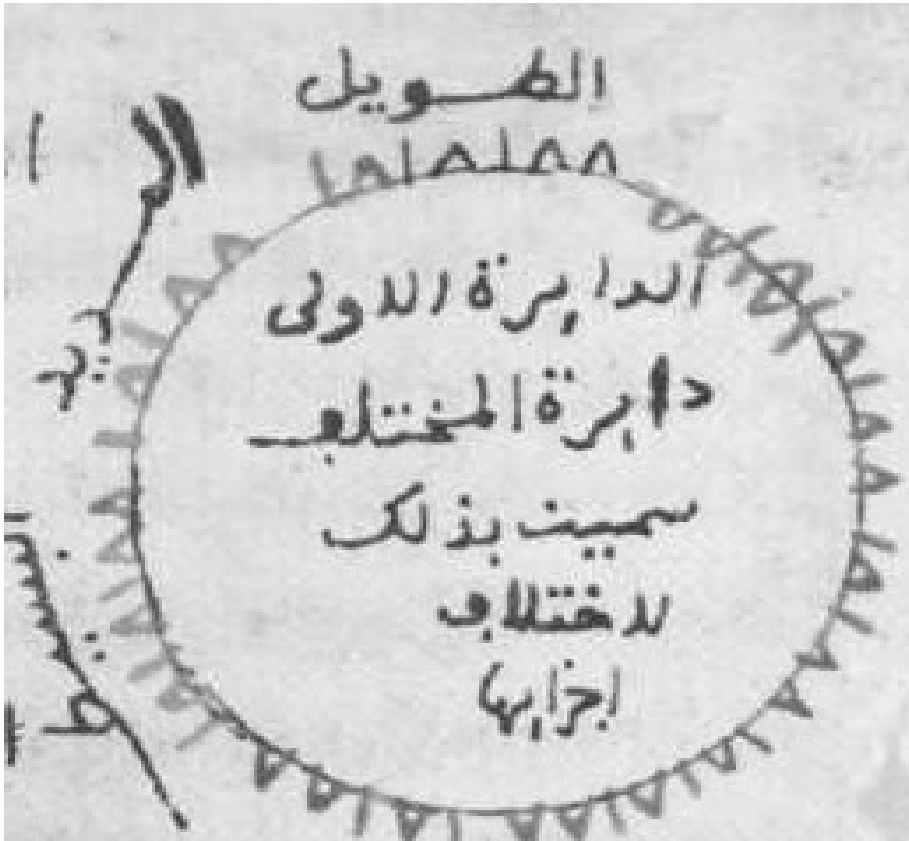 الطويل
المديد
البسيط
الدايرة الاولى
دايرة المختلف
سميت بذلك
لاختلاف
اجزايها